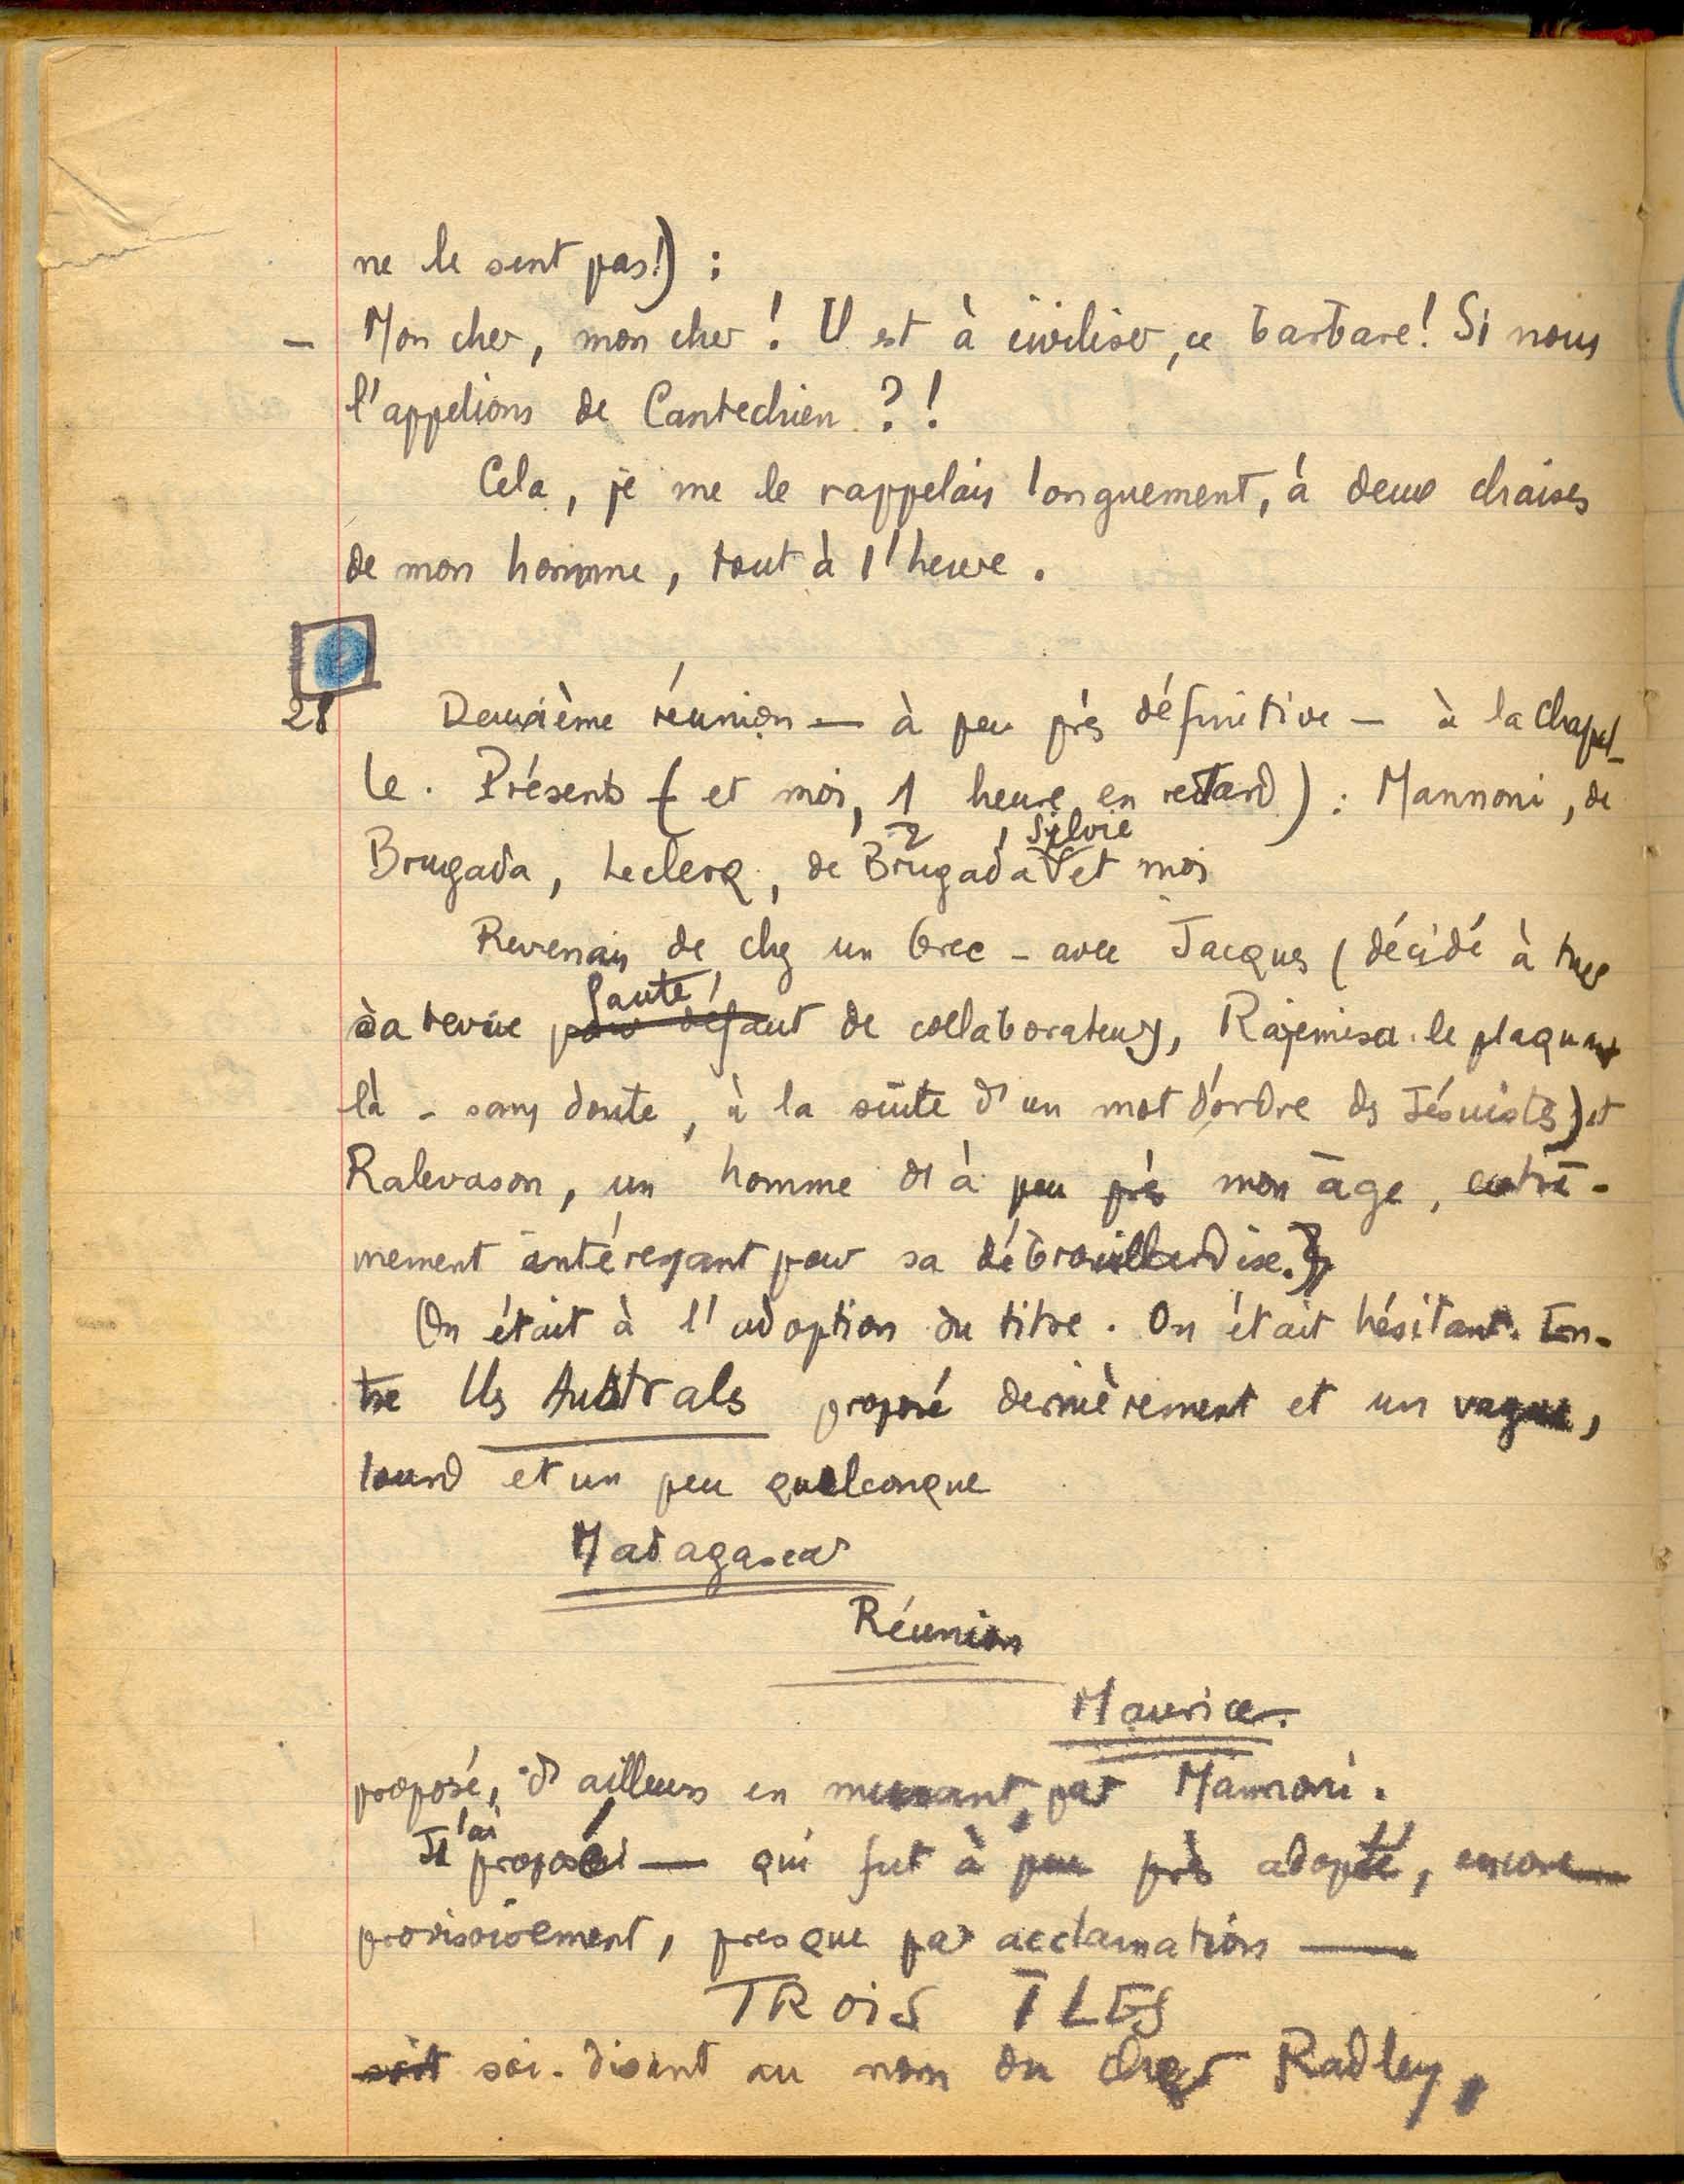 ne le sent pas!) :
— Mon cher, mon cher ! Il est à civiliser, ce barbare ! Si nous
l'appelions de Cantechien ? !
Cela, je me le rappelais longuement, à deux chaises
de mon homme, tout à l'heure.
28 Deuxième réunion — à peu près définitive — à la Chapel-
le. Présents ( et moi, 1/2 heure en retard ) : Mannoni, de
Brugada, Leclerq, de Brugada Sylvie et moi
Revenais de chez un Grec - avec Jacques ( décidé à tuer
sa revue faute de collaborateurs, Rajemisa le plaquant
là - sans doute, à la suite d'un mot d'ordre des Jésuistes) et
Ralevason, un homme d'à peu près mon âge, extrê-
mement intéressant pour sa débrouillardise.
On était à l'adoption du titre. On était hésitant. En-
tre Iles Australes proposé dernièrement et un vague,
lourd et un peu quelconque
Madagascar
Réunion
Maurice.
proposé, d'ailleurs en , par Mannoni.
J'ai proposé — qui fut à peu près adopté, encore
provisoirement, presque par acclamation —
TROIS ILES
soit soi-disant au nom du cher Radley,